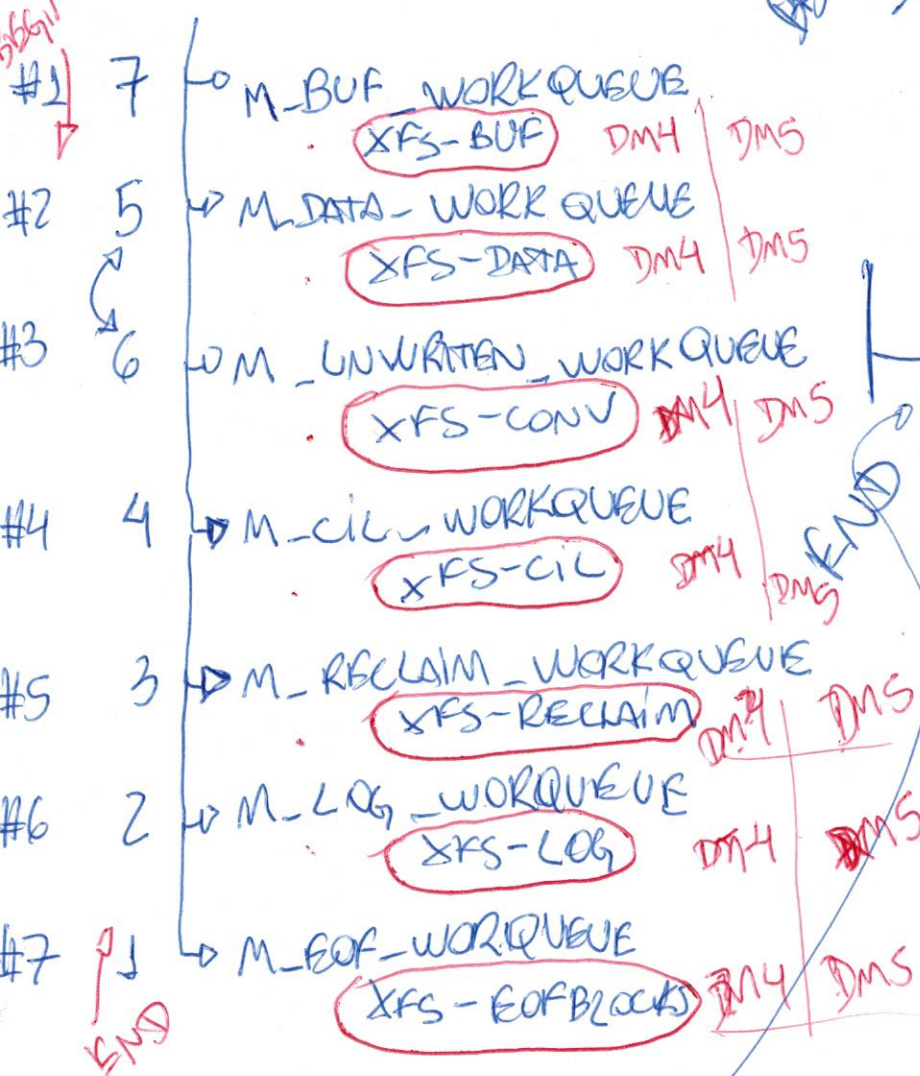 #1 7 M_BUF_WORKQUEUE
XFS-BUF DM4 DM5
#2 5 M_DATA-WORKQUEUE
XFS-DATA DM4 DM5
#3 6 M_UNWRITTEN_WORKQUEUE
XFS-CONV DM4 DM5
END
#4 4 M_CiL_WORKQUEUE
XFS-CiL DM4 DM5
#5 3 M_RECLAiM_WORKQUEUE
XFS-RECLAiM DM4 DM5
#6 2 M_LOG_WORQUEUE
XFS-LOG DM4 DM5
#7 1 M_EOF_WORQUEUE
XFS-EOFBLOCKS DM4 DM5
END